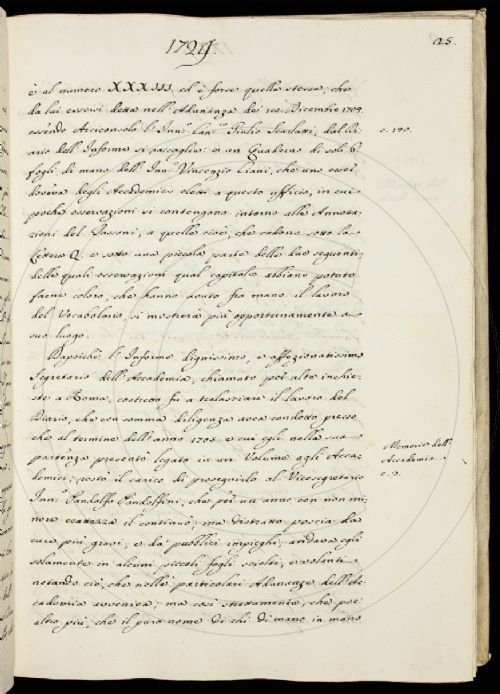 1729.
25.
è al numero XXXIII ed è forse quella stessa, che
da lui essersi detta nell'Adunanza dei 10. Dicembre 1704.
essendo Arciconsolo l'Inn.º Can.co Giulio Scarlatti, dal Di-
c. 140.
ario dell'Informe si raccoglie: e un Quaderno di soli 6
fogli di mano dell'Inn.º Vincenzio Ciani, che uno esser
doveva degli Accademici eletti a questo ufficio, in cui
poche osservazioni si contengono intorno alle Annota-
zioni del Tassoni, a quelle cioè, che cadono sotto la
Lettera Q. e sotto una piccola parte delle due seguenti;
delle quali osservazioni qual capitale abbiano potuto
farne coloro, che hanno avuto fra mano il lavoro
del Vocabolario, si mostrerà più opportunamente a
suo luogo.
Dapoichè l'Informe dignissimo, e affezionatissimo
Segretario dell'Accademia, chiamato poi alte inchie-
ste a Roma, costretto fu a tralasciare il lavoro del
Diario, che con somma diligenza avea condotto presso-
che al termine dell'anno 1705. e cui egli nella sua
partenza presentò legato in un Volume agli Acca-
Memorie dell'
Accademia.
c. 3.
demici; restò il carico di proseguirlo al Vicesegretario
Inn.º Pandolfo Pandolfini, che per un anno con non mi-
nore esattezza il continuò; ma distratto poscia da
cure più gravi, e da pubblici impieghi, andava egli
solamente in alcuni piccoli fogli sciolti, e volanti
notando ciò, che nelle particolari Adunanze dell'Ac-
cademia avveniva; ma così strettamente, che poi
altro più, che il puro nome di chi di mano in mano